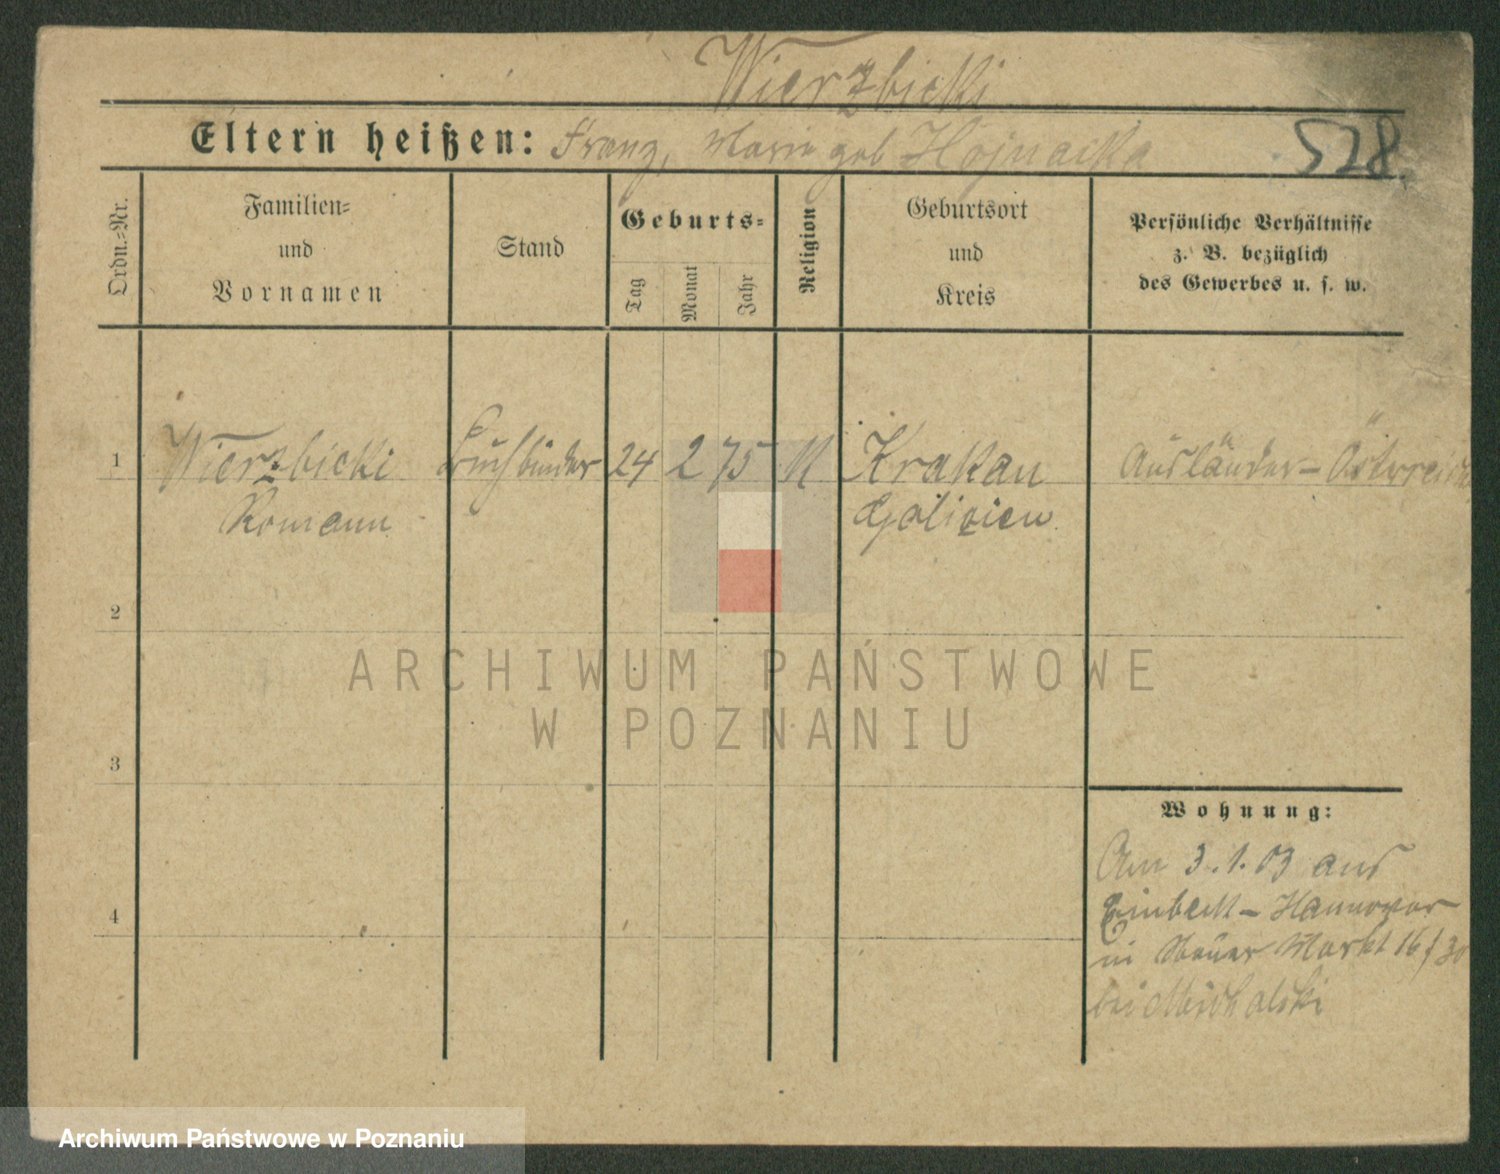 Wierzbicki
Eltern heißen: Franz, Marie geb Hojnacka
528.
Ordn.-Nr.
Familien-
und
Vornamen
Stand
Geburts-
Tag
Monat
Jahr
Religion
Geburtsort
und
Kreis
Persönliche Verhältnisse
z. B. bezüglich
des Gewerbes u. s. w.
1 Wierzbicki Buchbinder 24 2 75 K Krakau Ausländer - Österreich
Romann Galizien
2
3
4
ARCHIWUM PAŃSTWOWE
W POZNANIU
Wohnung:
Am 3.1.03 aus
Einbeck - Hannover
in Neuer Markt 16/30
bei Michalski
Archiwum Państwowe w Poznaniu